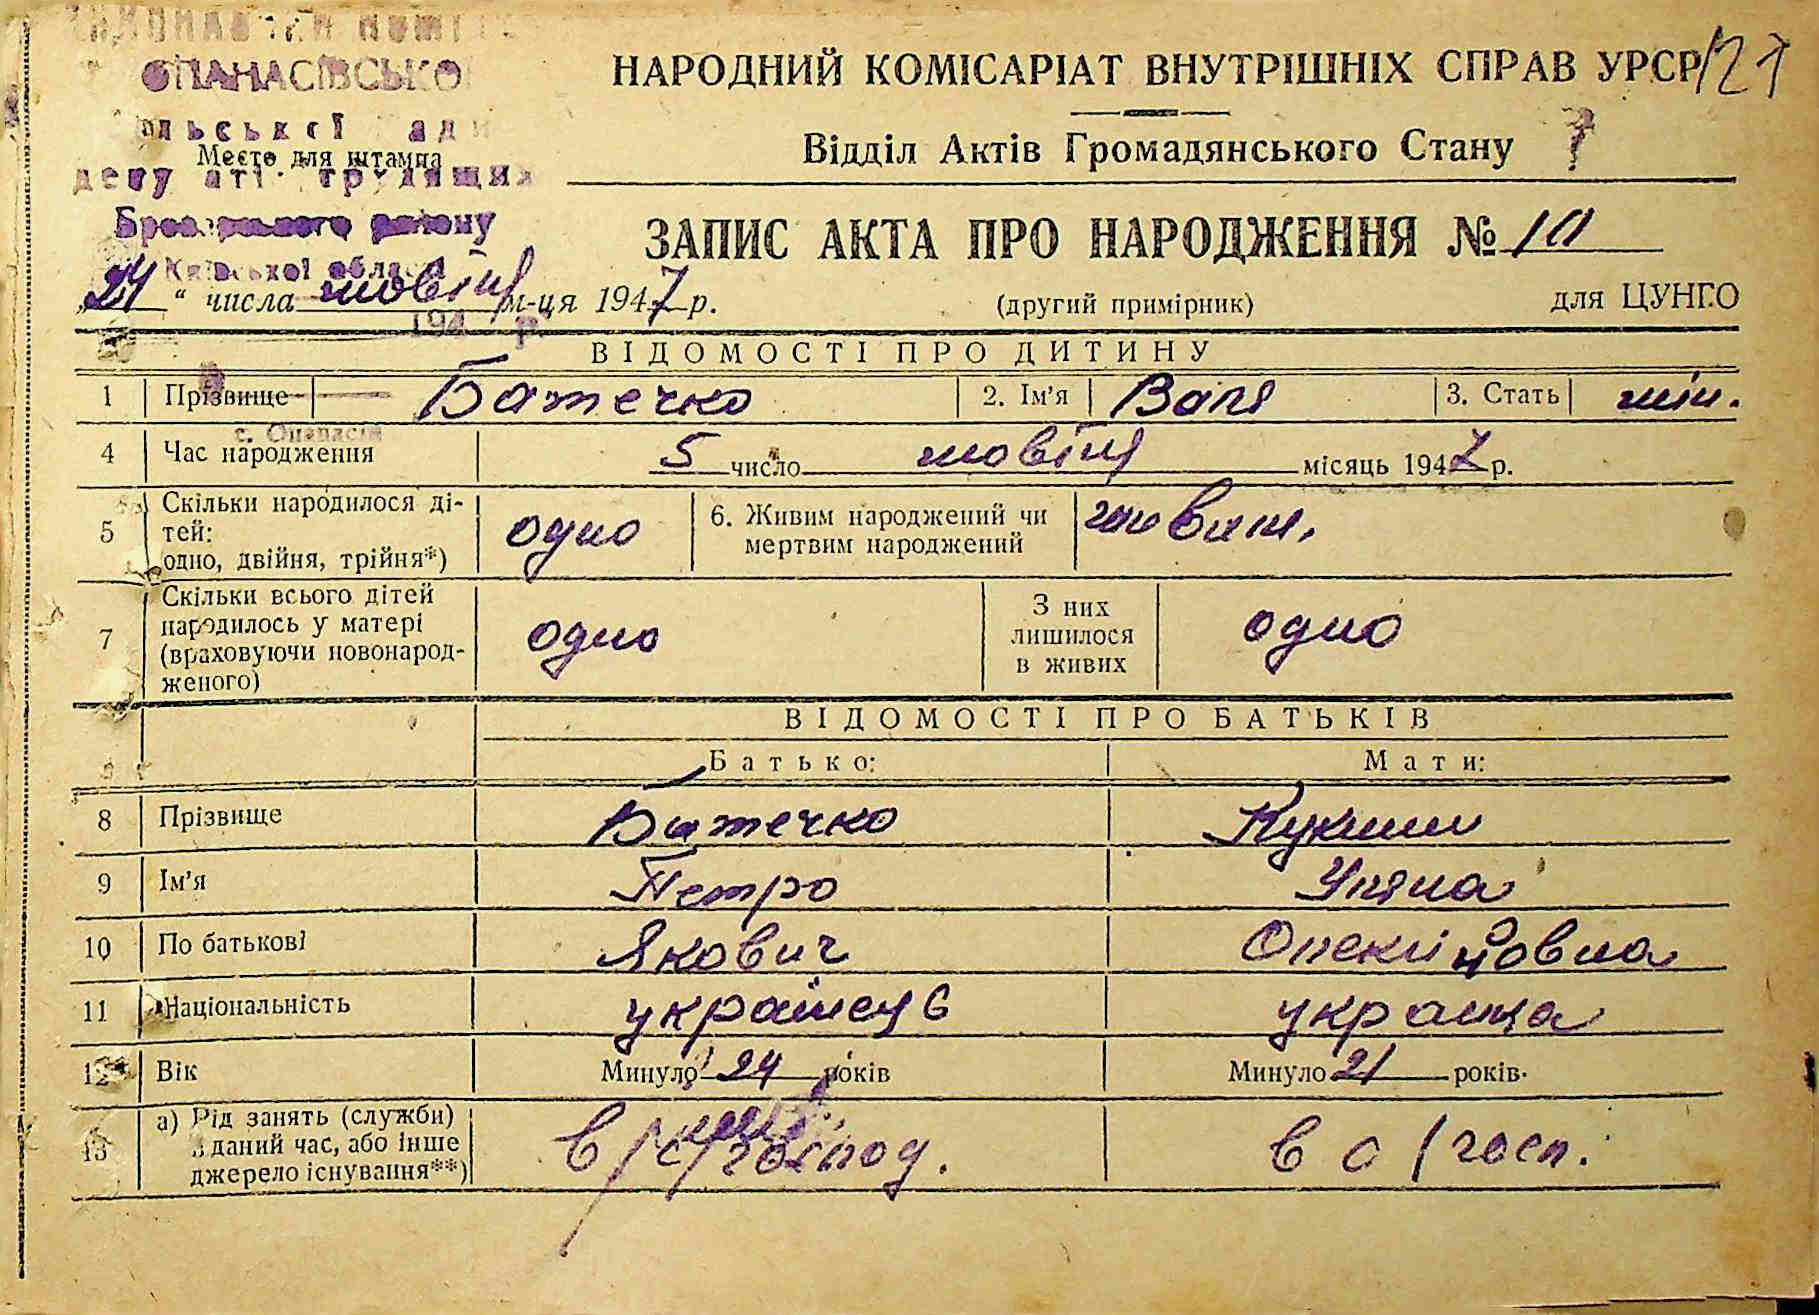 ОПАНАСІВСЬКО
НАРОДНИЙ КОМІСАРІАТ ВНУТРІШНІХ СПРАВ УРСР
121
Відділ Актів Громадянського Стану
Место для штампа
ЗАПИС АКТА ПРО НАРОДЖЕННЯ № 10
Київської
„24“ числа жовтня м-ця 1947 р.
(другий примірник)
для ЦУНГО
ВІДОМОСТІ ПРО ДИТИНУ
1 Прізвище Батечко 2. Ім'я Валя 3. Стать жін.
4 Час народження 5 число жовтня місяць 1947 р.
5 Скільки народилося ді-
тей:
одно, двійня, трійня*) одно
6. Живим народжений чи
мертвим народжений
7 Скільки всього дітей
народилось у матері
(враховуючи новонарод-
женого) одно
З них
лишилося
в живих одно
ВІДОМОСТІ ПРО БАТЬКІВ
Батько: Мати:
8 Прізвище Батечко
9 Ім'я Петро Уляна
10 По батькові Якович
11 Національність українець українка
12 Вік Минуло 24 років Минуло 21 років
13 а) Рід занять (служби)
в даний час, або інше
джерело існування**) в с/господ. в с/госп.